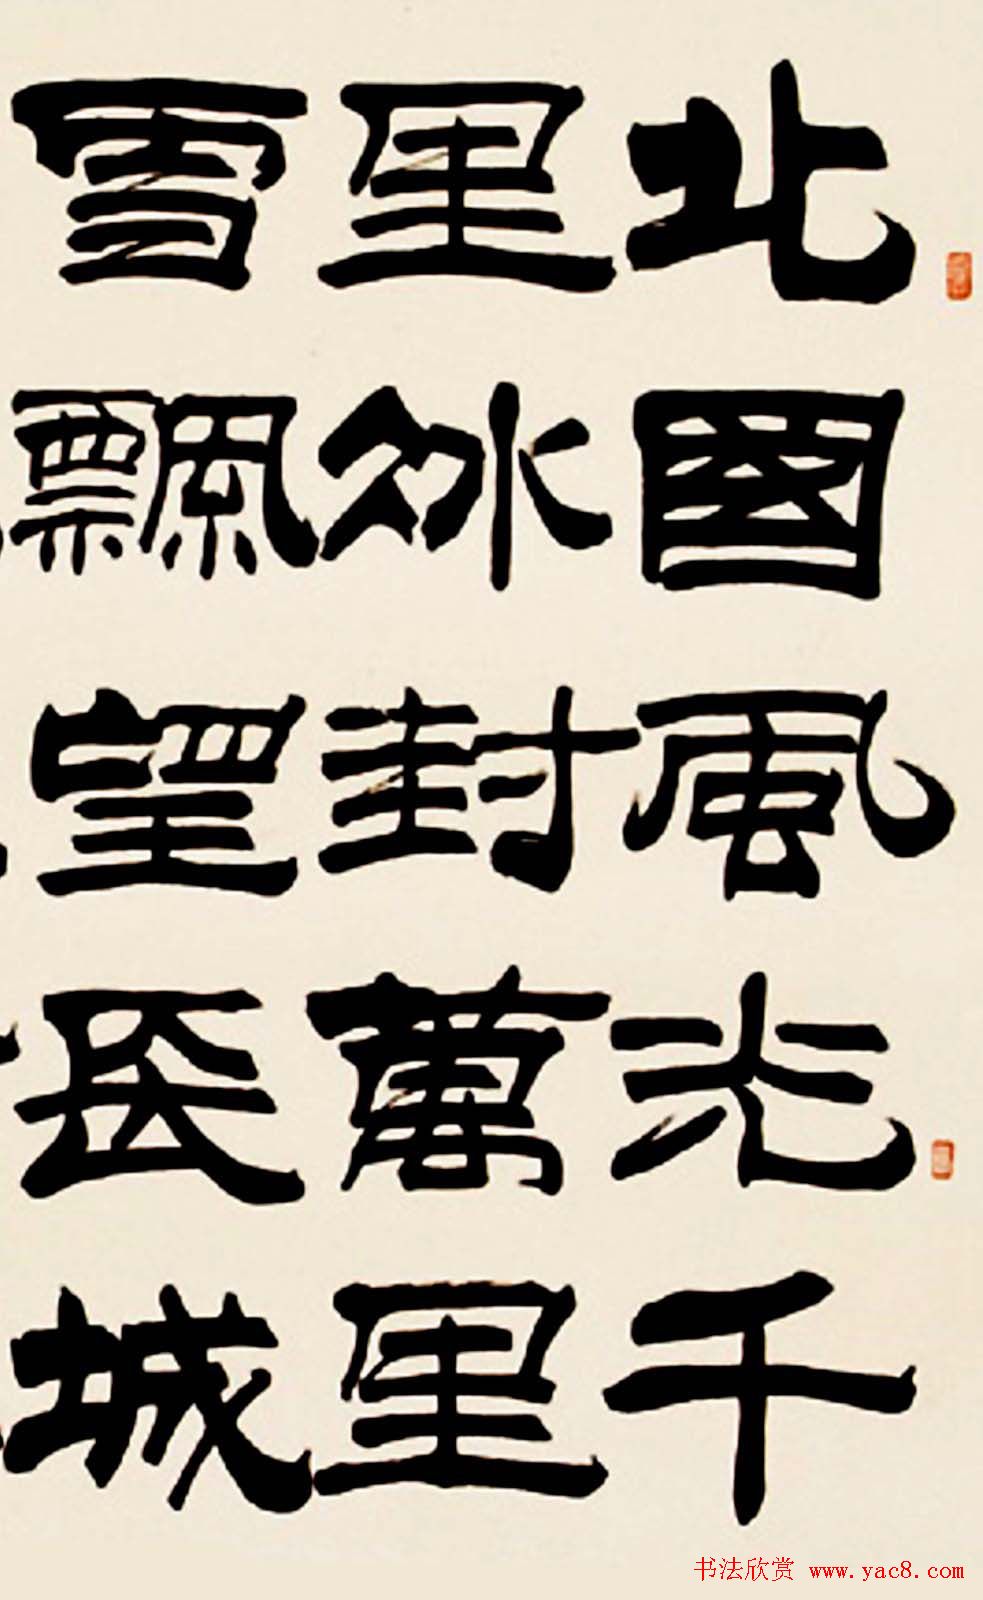 北國風光千
里冰封萬里
雪飄望長城
书法欣赏 www.yac8.com